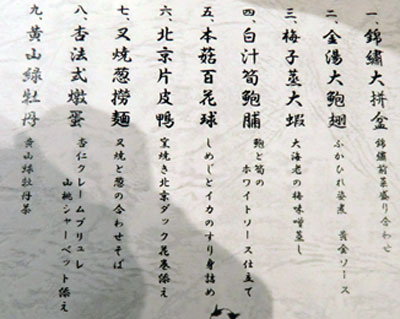 一、錦繡大拼盆
錦繡前菜盛り合わせ
二、金湯大鮑翅
ふかひれ姿煮 黄金ソース
三、梅子蒸大蝦
大海老の梅味噌蒸し
四、白汁筍鮑脯
鮑と筍の
ホワイトソース仕立て
五、本菇百花球
しめじとイカのすり身詰め
六、北京片皮鴨
窯焼き北京ダック花巻添え
七、叉焼葱撈麺
叉焼と葱の合わせそば
八、杏法式燉蛋
杏仁クレームブリュレ
山桃シャーベット添え
九、黄山緑牡丹
黄山緑牡丹茶